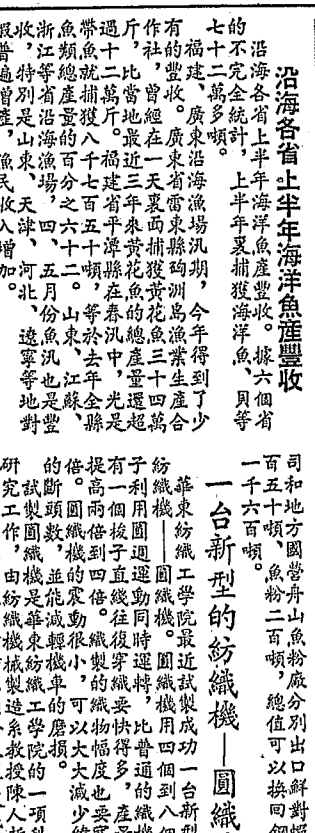 沿海各省上半年海洋魚産豐收
沿海各省上半年海洋魚產豐收。據六個省
的不完全統計，上半年裏捕獲海洋魚、貝等
七十二萬多噸。
福建、廣東沿海漁場汛期，今年得到了少
有的豐收。廣東省雷東縣硇洲島漁業生產合
作社，曾經在一天裏面捕獲黃花魚三十四萬
斤，比當地最近三年來黃花魚的總產量還超
過十二萬斤。福建省平潭縣在春汛中，光是
帶魚就捕獲八千七百五十噸，等於去年全縣
魚類總產量的百分之六十二。山東、江蘇、
浙江等省沿海漁場，四、五月份魚汛也是豐
收，特別是山東、天津、河北、遼寧等地對
蝦普遍增產，漁民收入增加。
司和地方國營舟山魚粉廠分別出口鮮對蝦
百五十噸、魚粉二百噸，總值可以換回鋼
一千六百噸。
一台新型的紡織機——圓織
華東紡織工學院最近試製成功一台新型
紡織機——圓織機。圓織機用四個到八個
子利用圓週運動同時運轉，比普通的織機
有一個梭子直綫往復穿織要快得多，產量
提高兩倍到四倍。織製的織物幅度也要寬
倍。圓織機的震動很小，可以大大減少
的斷頭數，並能減輕機車的磨損。
試製圓織機是華東紡織工學院的一項科
研究工作，由紡織機械製造系教授陳人